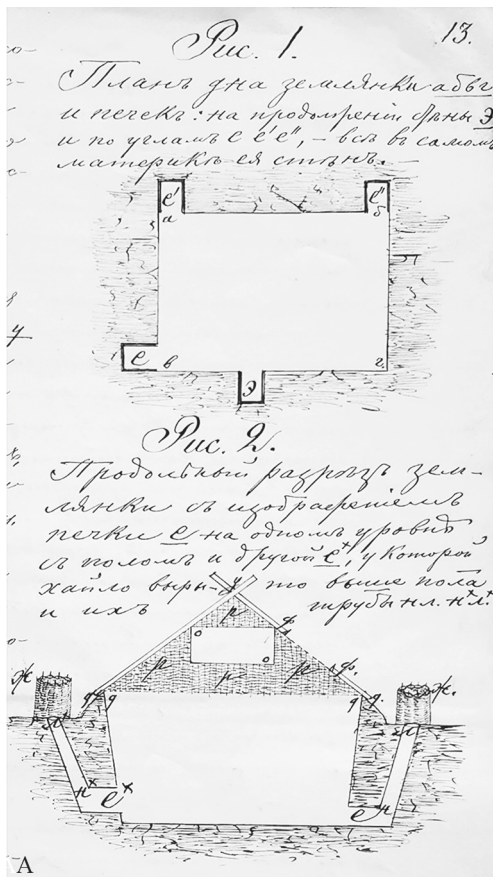 13.
Рис. 1.
Планъ дна землянки абвг
и печекъ: на продолженіи стѣны Э
и по угламъ е е' е", – всѣ въ самомъ
материкѣ ея стѣнъ.
е' е"
а б
е в г.
Э
Рис. 2.
Продольный разрѣзъ зем-
лянки съ изображеніемъ
печки е на одномъ уровнѣ
съ поломъ и другой е+, у которой
хайло выры- то выше пола
и ихъ трубы нл. н+л+
р ф
о о
р р р ф.
ж ж.
д д д д.
л+ л
н+ е+ е н
А